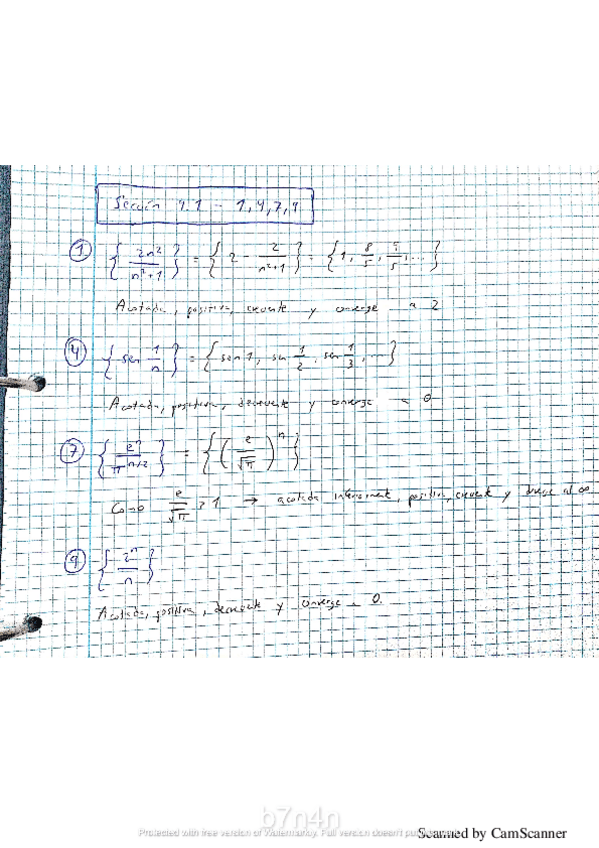 Sección 9.1 - 1,4,7,9
① { 2n² / n²+1 } = { 2 - 2 / n²+1 } = { 1, 8/5, 9/5, ... }
Acotada, positiva, creciente y converge a 2
④ { sen 1/n } = { sen 1, sen 1/2, sen 1/3, ... }
Acotada, positiva, decreciente y converge a 0
⑦ { eⁿ / π^(n/2) } = { ( e / √π )ⁿ }
Como e / √π > 1 → acotada inferiorment, positiva, creciente y diverge al ∞
⑨ { 2ⁿ / n }
Acotada, positiva, decreciente y converge a 0.
b7n4n
Protected with free version of Watermarkly. Full version doesn't put
Scanned by CamScanner